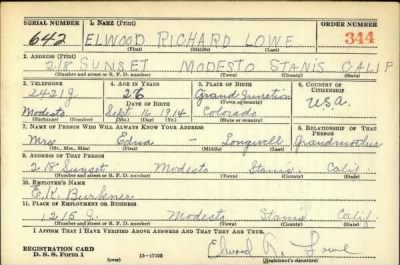 SERIAL NUMBER 1. NAME (Print) ORDER NUMBER
642 ELWOOD RICHARD LOWE 344
(First) (Middle) (Last)
2. ADDRESS (Print)
218 SUNSET MODESTO STANIS CALIF
(Number and street or R. F. D. number) (Town) (County) (State)
3. TELEPHONE 4. AGE IN YEARS 5. PLACE OF BIRTH 6. COUNTRY OF CITIZENSHIP
2421J 26 Grand Junction U.S.A.
DATE OF BIRTH (Town or county)
Modesto Sept. 16 1914 Colorado
(Exchange) (Mo.) (Day) (Yr.) (State or country)
7. NAME OF PERSON WHO WILL ALWAYS KNOW YOUR ADDRESS 8. RELATIONSHIP OF THAT PERSON
Mrs. Edna — Longwell Grandmother
(Mr., Mrs., Miss) (First) (Middle) (Last)
9. ADDRESS OF THAT PERSON
218 Sunset Modesto Stanis. Calif.
(Number and street or R. F. D. number) (Town) (County) (State)
10. EMPLOYER'S NAME
E.K. Burkner
11. PLACE OF EMPLOYMENT OR BUSINESS
1215 J. Modesto Stanis Calif.
(Number and street or R. F. D. number) (Town) (County) (State)
I AFFIRM THAT I HAVE VERIFIED ABOVE ANSWERS AND THAT THEY ARE TRUE.
REGISTRATION CARD
D. S. S. Form 1 Elwood R. Lowe
(Registrant's signature)